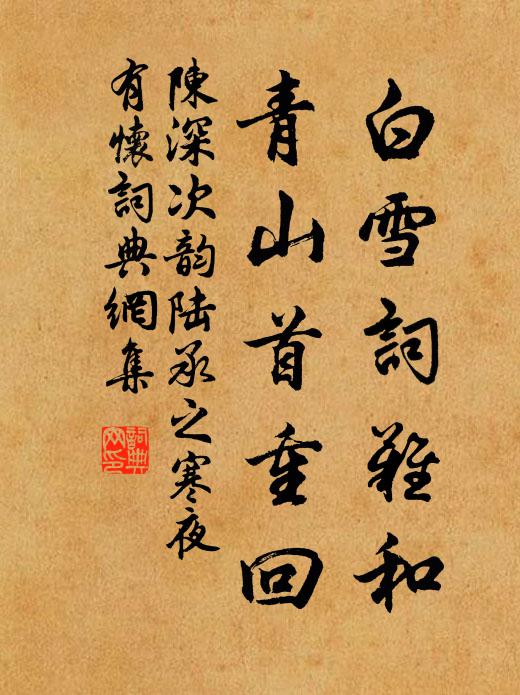 白雪詞難和
青山首重回
陳深次韵陆承之寒夜
有懷詞典網集
詞典
网印